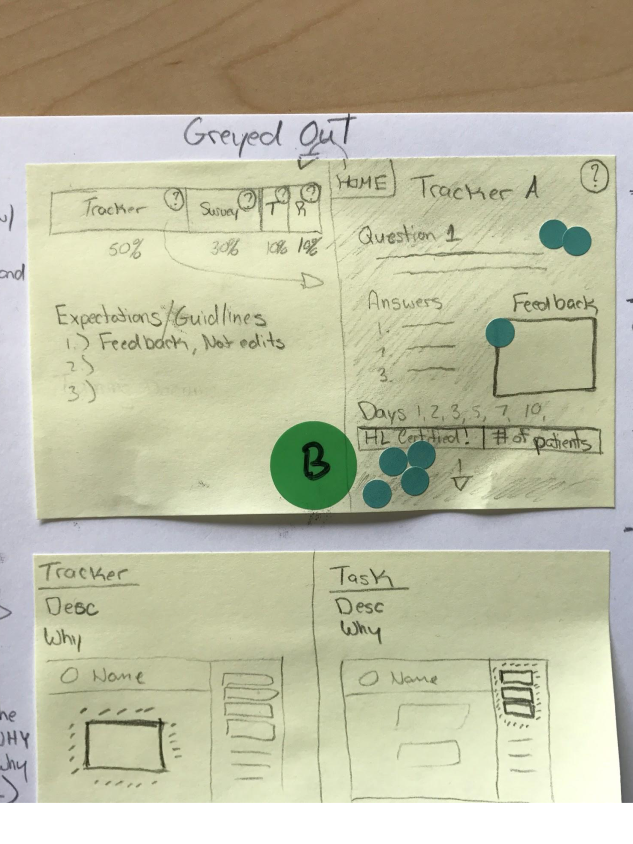 Greyed Out
Tracker ? Survey ? T ? R ?
50% 30% 10% 10%
Expectations/Guidlines
1.) Feedback, Not edits
2)
3)
B
HOME Tracker A ?
Question 1
Answers Feedback
1.
2.
3.
Days 1, 2, 3, 5, 7, 10,
HL Certified! # of patients
Tracker
Desc
Why
O Name
Task
Desc
Why
O Name
and
he
WHY
Why